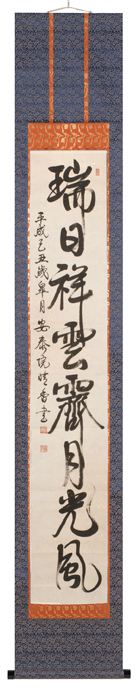 瑞日祥雲霽月光風
平成己丑歳皐月 安奈院晴香書